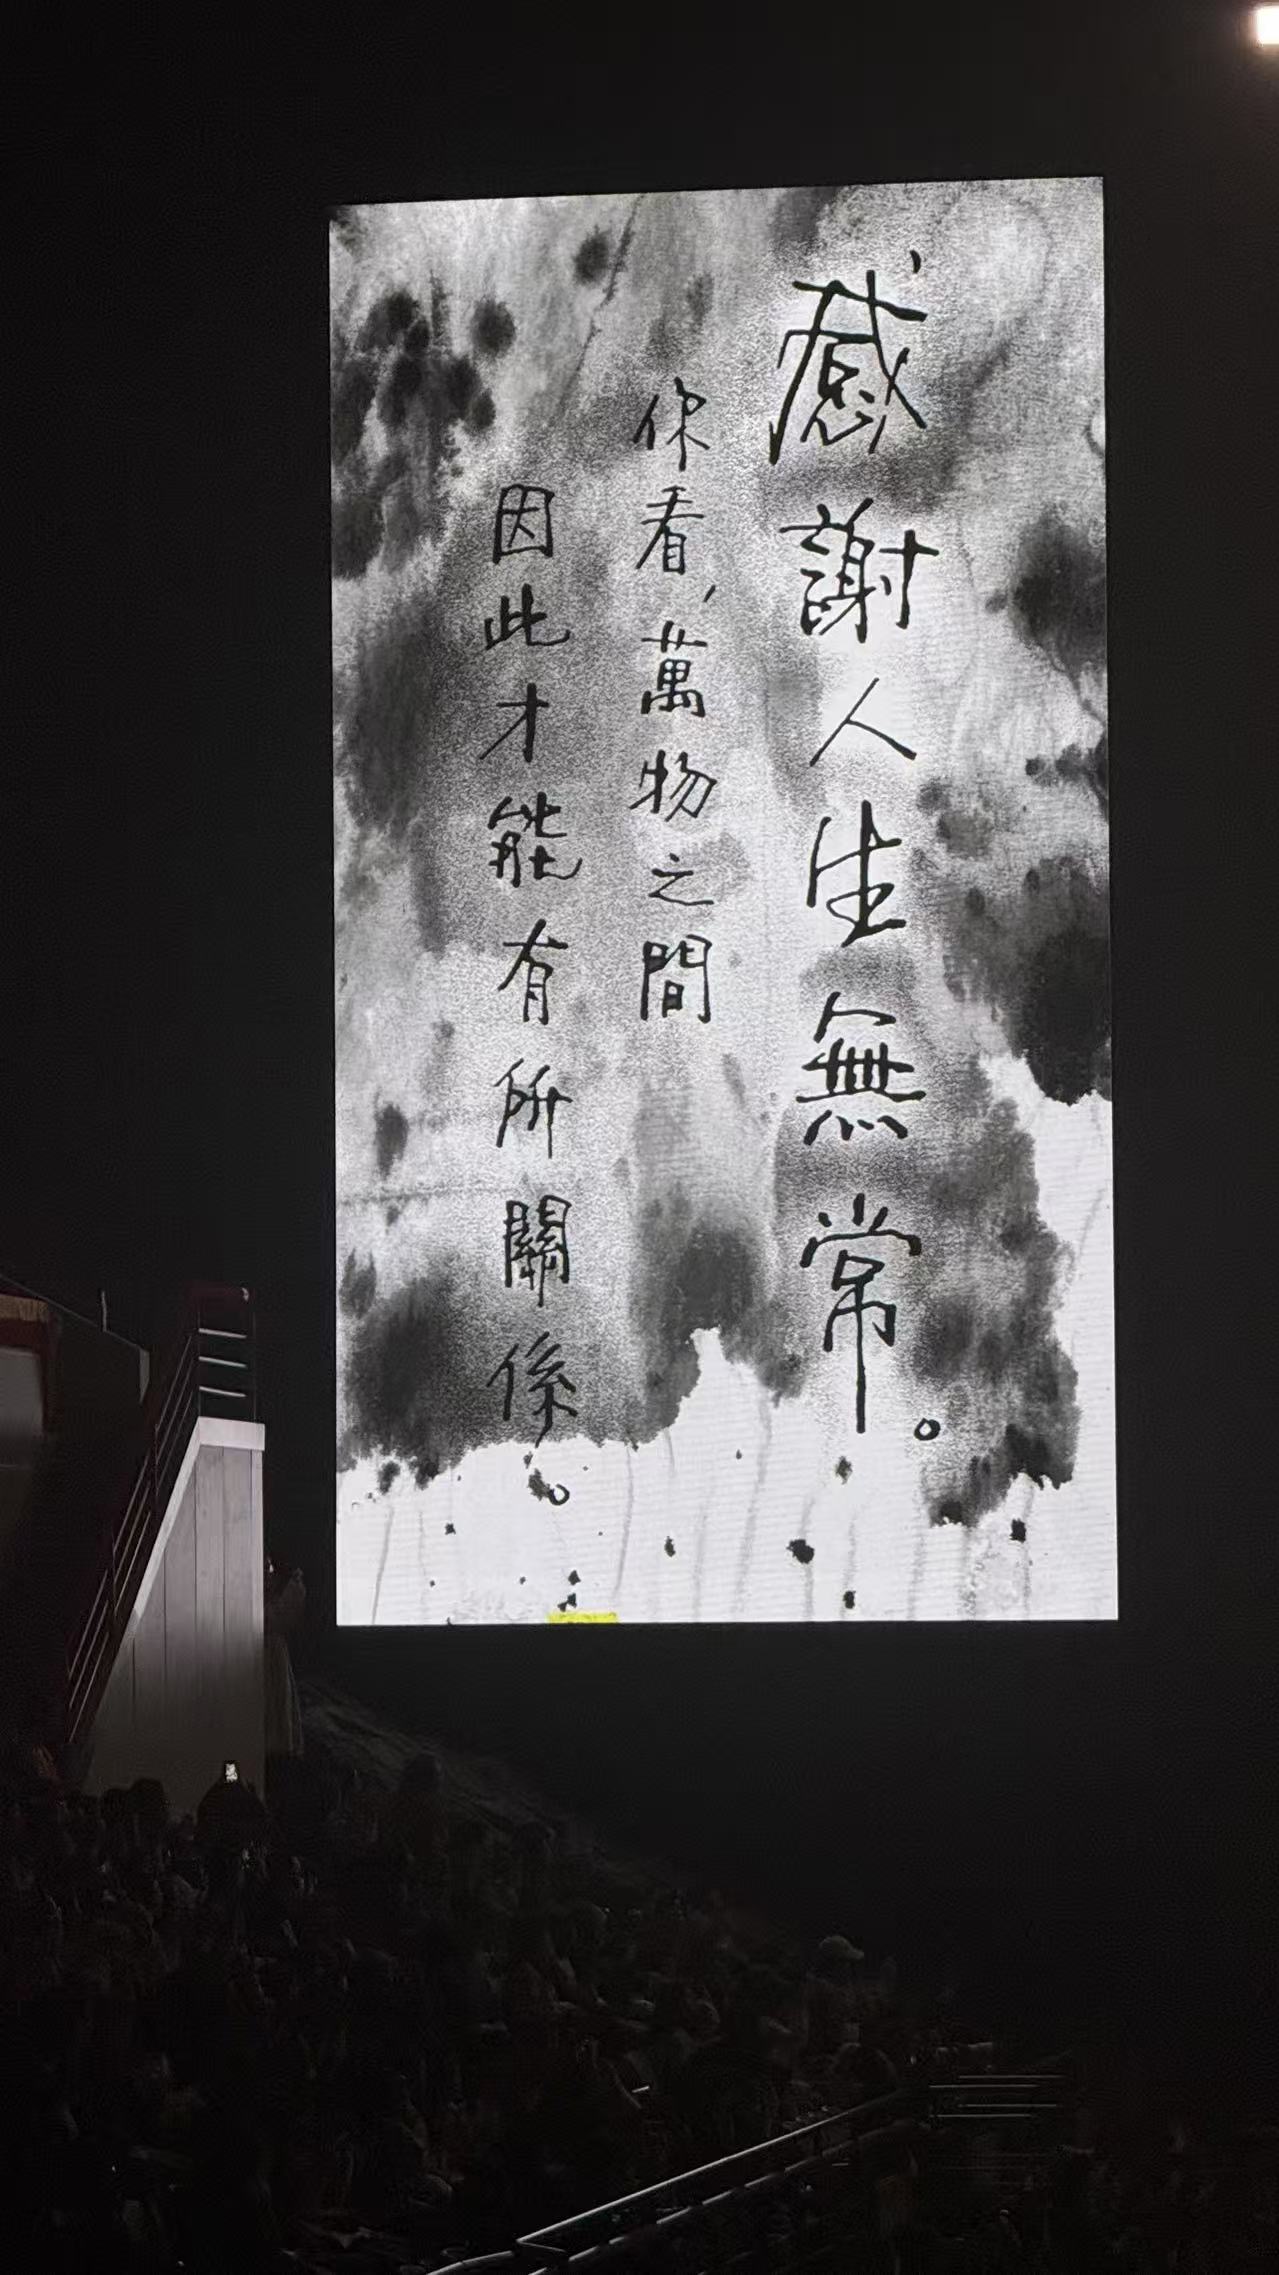 感謝人生無常。
你看，萬物之間
因此才能有所關係。